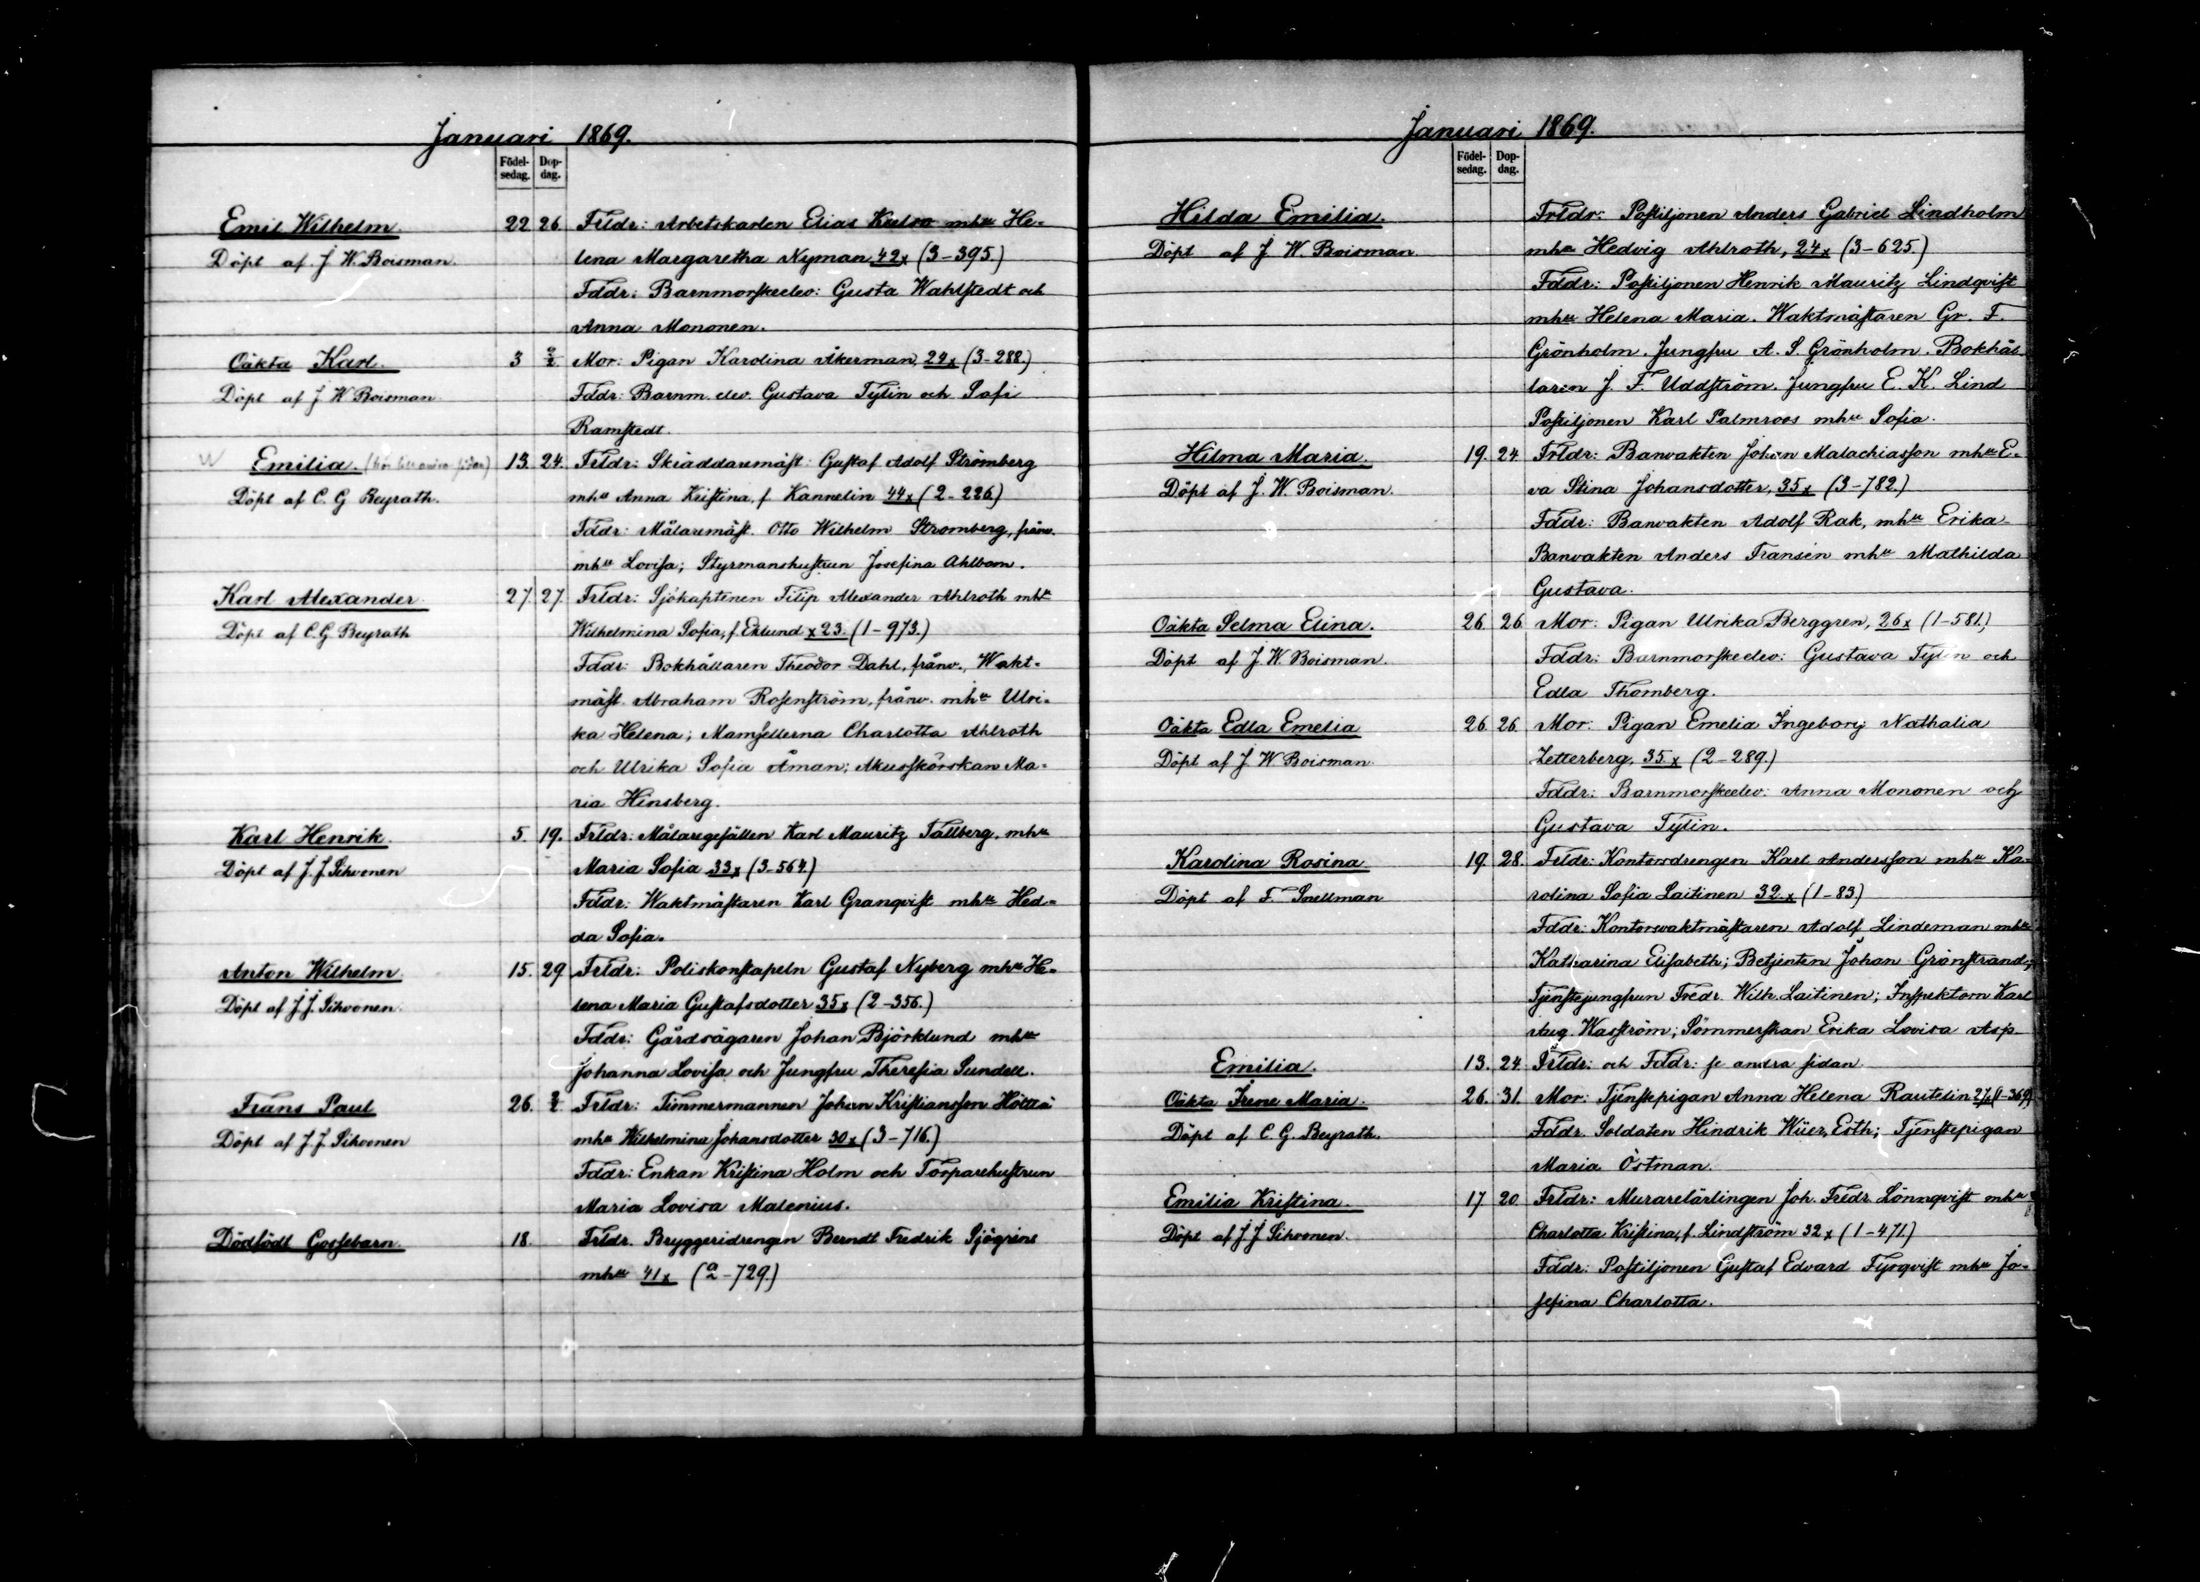 Januari 1869.
Födel-sedag. Dop-dag.
Emil Wilhelm 22 26 Frldr: Arbetskarlen Elias Kulso mhu He-
Döpt af J. W. Boisman. lena Margaretha Nyman 42x (3-395)
Fddr: Barnmorskeelev: Gusta Wahlstedt och
Anna Mononen.
Oäkta Karl. 3 2/2 Mor: Pigan Karolina Åkerman, 24x (3-288.)
Döpt af J W Boisman Fddr: Barnm. elev. Gustava Tylin och Sofi
Ramstedt.
Emilia. 13. 24. Frldr: Skräddaremäst: Gustaf Adolf Strömberg
Döpt af C. G Beyrath. mhu Anna Kristina, f Kannelin 44x (2-226)
Fddr: Målaremäst. Otto Wilhelm Stromberg, frånv.
mhu Lovisa; Styrmanshustrun Josefina Ahlbom.
Karl Alexander. 27. 27. Frldr: Sjökaptenen Filip Alexander Ahlroth mhu
Döpt af C. G. Beyrath Wilhelmina Sofia, f. Eklund x 23. (1-973.)
Fddr: Bokhållaren Theodor Dahl, frånv., Wakt-
mäst. Abraham Rosenström, frånv. mhu Ulri-
ka Helena; Mamsellerna Charlotta Ahlroth
och Ulrika Sofia Åman; Akusskörskan Ma-
ria Hinsberg.
Karl Henrik. 5. 19. Frldr: Målaregesällen Karl Mauritz Tallberg, mhu
Döpt af J. J. Sihvonen Maria Sofia 33x (3-564.)
Fddr: Waktmästaren Karl Granqvist mhu Hed-
da Sofia.
Anton Wilhelm 15. 29 Frldr: Poliskonstapeln Gustaf Nyberg mhu He-
Döpt af J. J. Sihvonen. lena Maria Gustafsdotter 35x (2-356.)
Fddr: Gårdsägaren Johan Björklund mhu
Johanna Lovisa och Jungfru Theresia Sundell.
Frans Paul 26. 2/2 Frldr: Timmermannen Johan Kristiansson Höttä
Döpt af J. J Sihvonen mhu Wilhelmina Johansdotter 30x (3-716.)
Fddr: Enkan Kristina Holm och Torparehustrun
Maria Lovisa Malenius.
Dödfödt Gossebarn. 18. Frldr. Bryggeridrengen Berndt Fredrik Sjögrens
mhu 41x (2-729.)
Januari 1869.
Födel-sedag. Dop-dag.
Hilda Emilia. Frldr: Postiljonen Anders Gabriel Lindholm
Döpt af J W. Boisman. mhu Hedvig Ahlroth, 24x (3-625.)
Fddr: Postiljonen Henrik Mauritz Lindqvist
mhu Helena Maria. Waktmästaren Gr. F.
Grönholm. Jungfru A. S. Grönholm. Bokhål-
laren J. F. Uddström. Jungfru E. K. Lind
Postiljonen Karl Palmroos mhu Sofia.
Hilma Maria. 19. 24 Frldr: Banvakten Johan Malachiasson mhu E-
Döpt af J. W. Boisman. va Stina Johansdotter, 35x (3-782.)
Fddr: Banvakten Adolf Rak, mhu Erika
Banvakten Anders Fransén mhu Mathilda
Gustava.
Oäkta Selma Elina. 26. 26 Mor: Pigan Ulrika Berggren, 26x (1-581.)
Döpt af J. W. Boisman. Fddr: Barnmorskeelev: Gustava Tylin och
Edla Thomberg.
Oäkta Edla Emelia 26. 26. Mor: Pigan Emelia Ingeborg Nathalia
Döpt af J. W Boisman. Zetterberg, 35x (2-289.)
Fddr: Barnmorskeelev: Anna Mononen och
Gustava Tylin.
Karolina Rosina 19. 28. Frldr: Kontorsdrengen Karl Andersson mhu Ka-
Döpt af F. Snellman rolina Sofia Laitinen 32x (1-83)
Fddr: Kontorsvaktmästaren Adolf Lindeman mhu
Katharina Elisabeth; Betjenten Johan Grönstrand;
Tjenstejungfrun Fredr. Wilh. Laitinen; Inspektorn Karl
Aug. Wasström; Sömmerskan Erika Lovisa Asp.
Emilia. 13. 24. Frldr: och Fddr: se andra sidan.
Oäkta Irene Maria. 26. 31. Mor: Tjenstepigan Anna Helena Rautelin 27x (1-369)
Döpt af C. G. Beyrath. Fddr. Soldaten Hindrik Wüer, Esth; Tjenstepigan
Maria Östman.
Emilia Kristina. 17 20. Frldr: Murarelärlingen Joh. Fredr. Lönnqvist mhu
Döpt af J J Sihvonen. Charlotta Kristina, f. Lindström 32x (1-471.)
Fddr: Postiljonen Gustaf Edvard Fyrqvist mhu Jo-
sefina Charlotta.